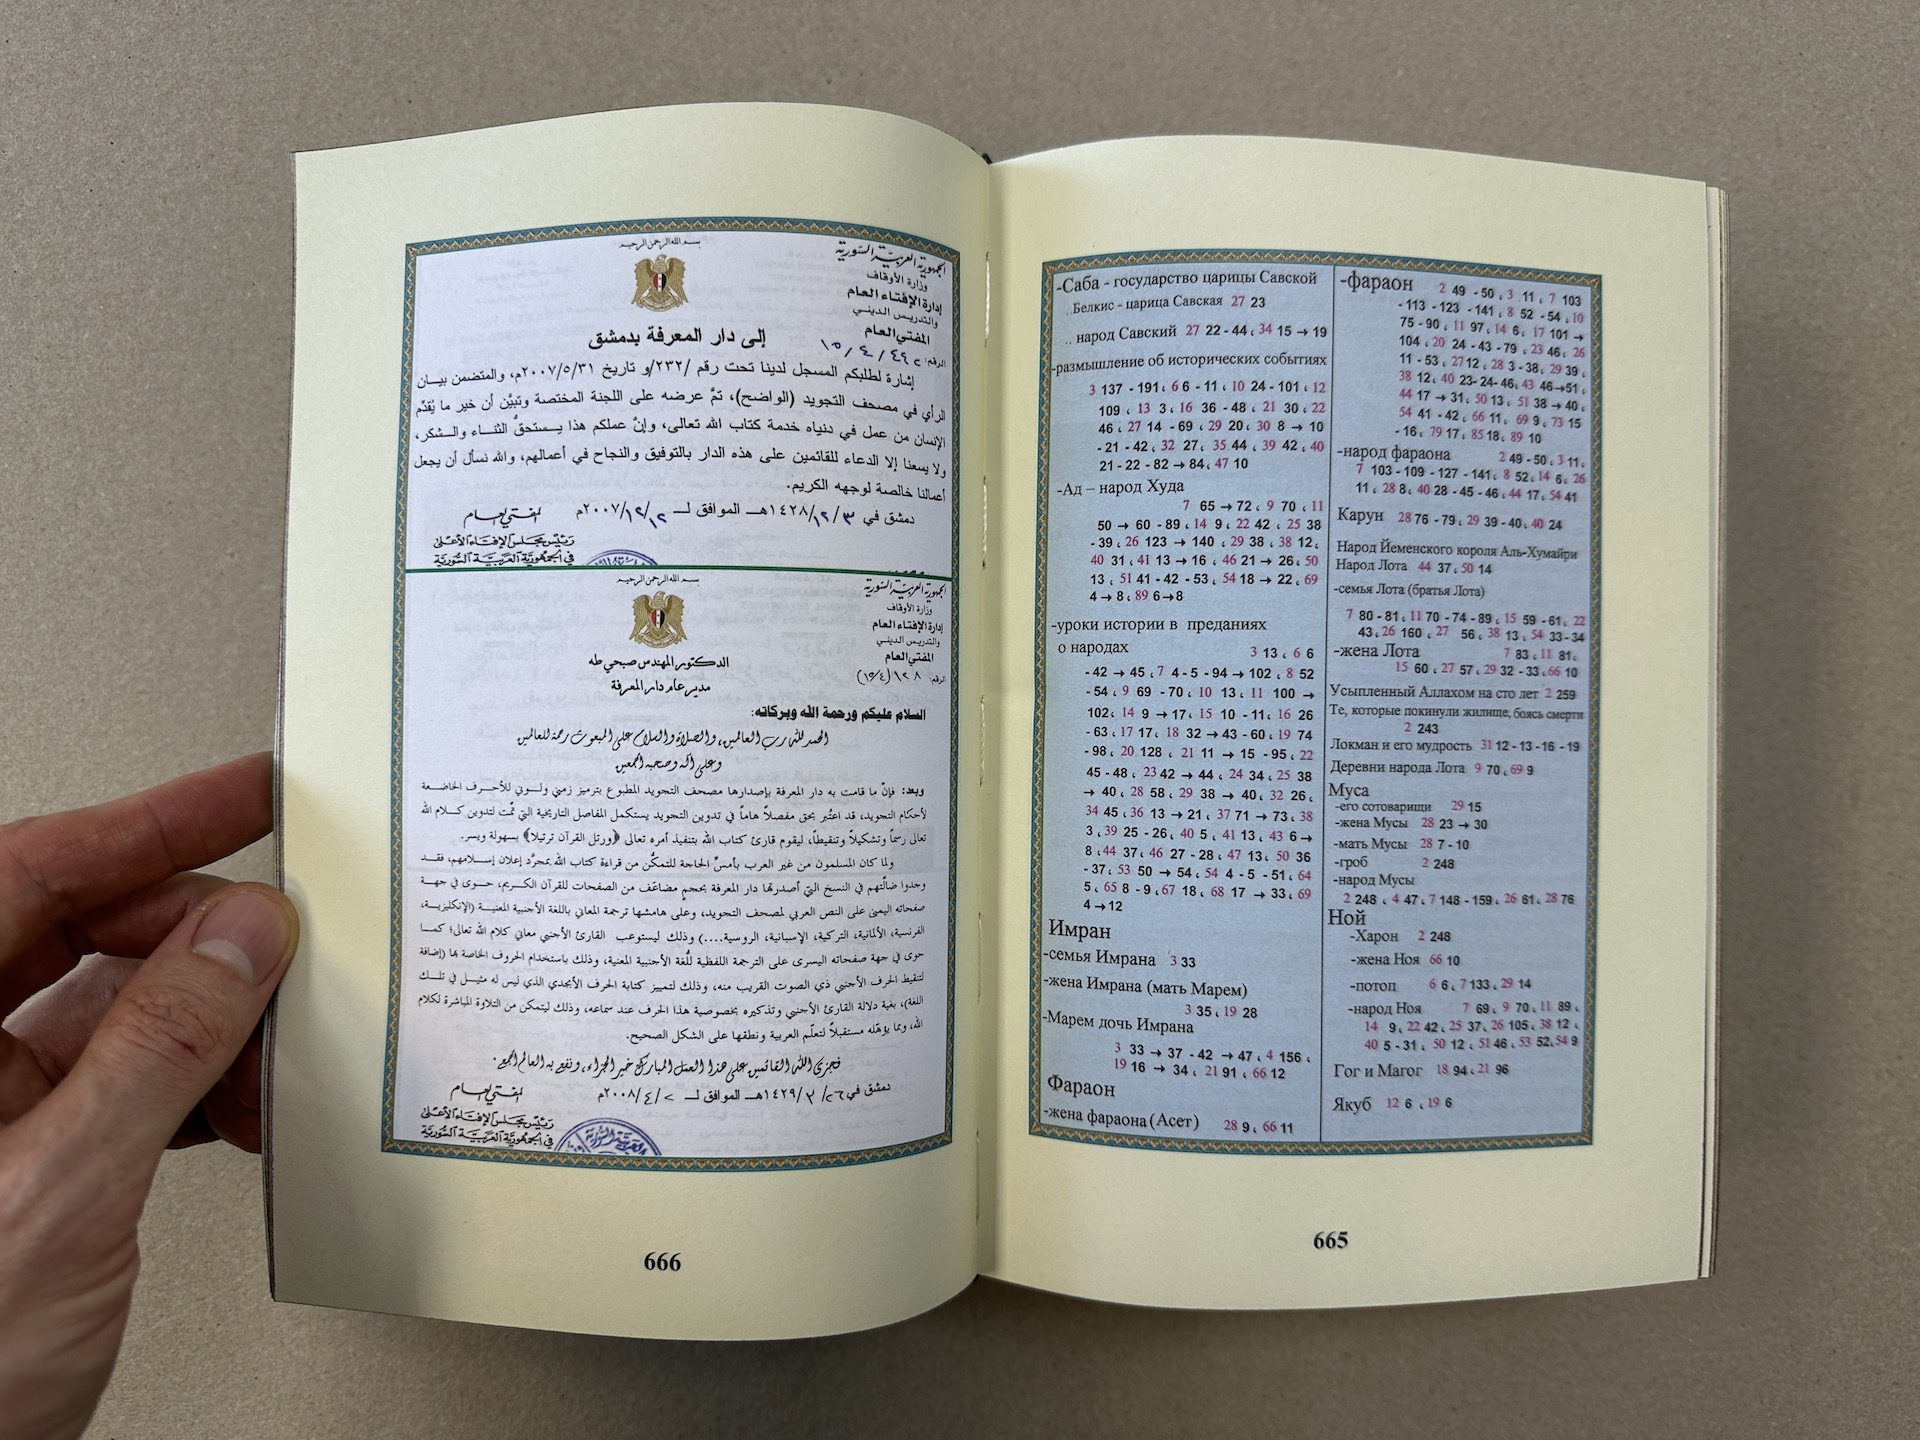 بسم الله الرحمن الرحيم
الجمهورية العربية السورية
وزارة الأوقاف
إدارة الإفتاء العام
والتدريس الديني
المفتي العام
الرقم:
إلى دار المعرفة بدمشق
إشارة لطلبكم المسجل لدينا تحت رقم /٢٣٢/و تاريخ ٢٠٠٧/٥/٣١م، والمتضمن بيـــان
الرأي في مصحف التجويد (الواضح)، تمَّ عرضه على اللجنة المختصة وتبيَّن أن خير ما يُقدِّم
الإنسان من عمل في دنياه خدمة كتاب الله تعالى، وإنَّ عملكم هذا يستحقُّ الثناء والشكر،
ولا يسعنا إلا الدعاء للقائمين على هذه الدار بالتوفيق والنجاح في أعمالهم، والله نسأل أن يجعل
أعمالنا خالصة لوجهه الكريم.
دمشق في ١٤٢٨/١٢/٣هـ الموافق لـ ٢٠٠٧/١٢/١٢م
المفتي العام
رئيس مجلس الإفتاء الأعلى
في الجمهورية العربية السورية
بسم الله الرحمن الرحيم
الجمهورية العربية السورية
وزارة الأوقاف
إدارة الإفتاء العام
والتدريس الديني
المفتي العام
الرقم:
الدكتور المهندس صبحي طه
مدير عام دار المعرفة
السلام عليكم ورحمة الله وبركاته:
الحمد لله رب العالمين، والصلاة والسلام على المبعوث رحمة للعالمين
وعلى آله وصحبه أجمعين
وبعد: فإنّ ما قامت به دار المعرفة بإصدارها مصحف التجويد المطبوع بترميز زمني ولوني للأحرف الخاضعة
لأحكام التجويد، قد اعتُبر بحق مفصلاً هاماً في تدوين التجويد يستكمل المفاصل التاريخية التي تمّت لتدوين كلام الله
تعالى رسماً وتشكيلاً وتنقيطاً، ليقوم قارئ كتاب الله بتنفيذ أمره تعالى ﴿ورتل القرآن ترتيلا﴾ بسهولة ويسر.
ولما كان المسلمون من غير العرب بأمسِّ الحاجة للتمكُّن من قراءة كتاب الله بمجرَّد إعلان إسلامهم، فقد
وجدوا ضالّتهم في النسخ التي أصدرتها دار المعرفة بحجم مضاعَف من الصفحات للقرآن الكريم، حوى في جهة
صفحاته اليمنى على النص العربي لمصحف التجويد، وعلى هامشها ترجمة المعاني باللغة الأجنبية المعنية (الإنكليزية،
الفرنسية، الألمانية، التركية، الإسبانية، الروسية....) وذلك ليستوعب القارئ الأجنبي معاني كلام الله تعالى؛ كما
حوى في جهة صفحاته اليسرى على الترجمة اللفظية للّغة الأجنبية المعنية، وذلك باستخدام الحروف الخاصة بها (إضافة
لتنقيط الحرف الأجنبي ذي الصوت القريب منه، وذلك لتمييز كتابة الحرف الأبجدي الذي ليس له مثيل في تلك
اللغة)، بغية دلالة القارئ الأجنبي وتذكيره بخصوصية هذا الحرف عند سماعه، وذلك ليتمكن من التلاوة المباشرة لكلام
الله، وبما يؤهّله مستقبلاً لتعلّم العربية ونطقها على الشكل الصحيح.
فجزى الله القائمين على هذا العمل المبارك خير الجزاء، ونفع به العالم أجمع.
دمشق في ٢٦/٣/١٤٢٩هـ الموافق لـ ٢/٤/٢٠٠٨م
المفتي العام
رئيس مجلس الإفتاء الأعلى
في الجمهورية العربية السورية
666
-Саба - государство царицы Савской
..Белкис - царица Савская 27 23
.. народ Савский 27 22 - 44، 34 15 → 19
-размышление об исторических событиях
3 137 - 191، 6 6 - 11، 10 24 - 101، 12
109، 13 3، 16 36 - 48، 21 30، 22
46، 27 14 - 69، 29 20، 30 8 → 10
- 21 - 42، 32 27، 35 44، 39 42، 40
21 - 22 - 82 → 84، 47 10
-Ад – народ Худа
7 65 → 72، 9 70، 11
50 → 60 - 89، 14 9، 22 42، 25 38
- 39، 26 123 → 140، 29 38، 38 12،
40 31، 41 13 → 16، 46 21 → 26، 50
13، 51 41 - 42 - 53، 54 18 → 22، 69
4 → 8، 89 6→8
-уроки истории в преданиях
о народах 3 13، 6 6
- 42 → 45، 7 4 - 5 - 94 → 102، 8 52
- 54، 9 69 - 70، 10 13، 11 100 →
102، 14 9 → 17، 15 10 - 11، 16 26
- 63، 17 17، 18 32 → 43 - 60، 19 74
- 98، 20 128، 21 11 → 15 - 95، 22
45 - 48، 23 42 → 44، 24 34، 25 38
→ 40، 28 58، 29 38 → 40، 32 26،
34 45، 36 13 → 21، 37 71 → 73، 38
3، 39 25 - 26، 40 5، 41 13، 43 6 →
8، 44 37، 46 27 - 28، 47 13، 50 36
- 37، 53 50 → 54، 54 4 - 5 - 51، 64
5، 65 8 - 9، 67 18، 68 17 → 33، 69
4 → 12
Имран
-семья Имрана 3 33
-жена Имрана (мать Марем)
3 35، 19 28
-Марем дочь Имрана
3 33 → 37 - 42 → 47، 4 156،
19 16 → 34، 21 91، 66 12
Фараон
-жена фараона (Асет) 28 9، 66 11
-фараон 2 49 - 50، 3 11، 7 103
- 113 - 123 - 141، 8 52 - 54، 10
75 - 90، 11 97، 14 6، 17 101 →
104، 20 24 - 43 - 79، 23 46، 26
11 - 53، 27 12، 28 3 - 38، 29 39،
38 12، 40 23- 24- 46، 43 46→51،
44 17 → 31، 50 13، 51 38 → 40،
54 41 - 42، 66 11، 69 9، 73 15
- 16، 79 17، 85 18، 89 10
-народ фараона 2 49 - 50، 3 11،
7 103 - 109 - 127 - 141، 8 52، 14 6، 26
11، 28 8، 40 28 - 45 - 46، 44 17، 54 41
Карун 28 76 - 79، 29 39 - 40، 40 24
Народ Йеменского короля Аль-Хумайри
Народ Лота 44 37، 50 14
-семья Лота (братья Лота)
7 80 - 81، 11 70 - 74 - 89، 15 59 - 61، 22
43، 26 160، 27 56، 38 13، 54 33 - 34
-жена Лота 7 83، 11 81،
15 60، 27 57، 29 32 - 33، 66 10
Усыпленный Аллахом на сто лет 2 259
Те, которые покинули жилище, боясь смерти
2 243
Локман и его мудрость 31 12 - 13 - 16 - 19
Деревни народа Лота 9 70، 69 9
Муса
-его сотоварищи 29 15
-жена Мусы 28 23 → 30
-мать Мусы 28 7 - 10
-гроб 2 248
-народ Мусы
2 248، 4 47، 7 148 - 159، 26 61، 28 76
Ной
-Харон 2 248
-жена Ноя 66 10
-потоп 6 6، 7 133، 29 14
-народ Ноя 7 69، 9 70، 11 89،
14 9، 22 42، 25 37، 26 105، 38 12،
40 5 - 31، 50 12، 51 46، 53 52، 54 9
Гог и Магог 18 94، 21 96
Якуб 12 6، 19 6
665